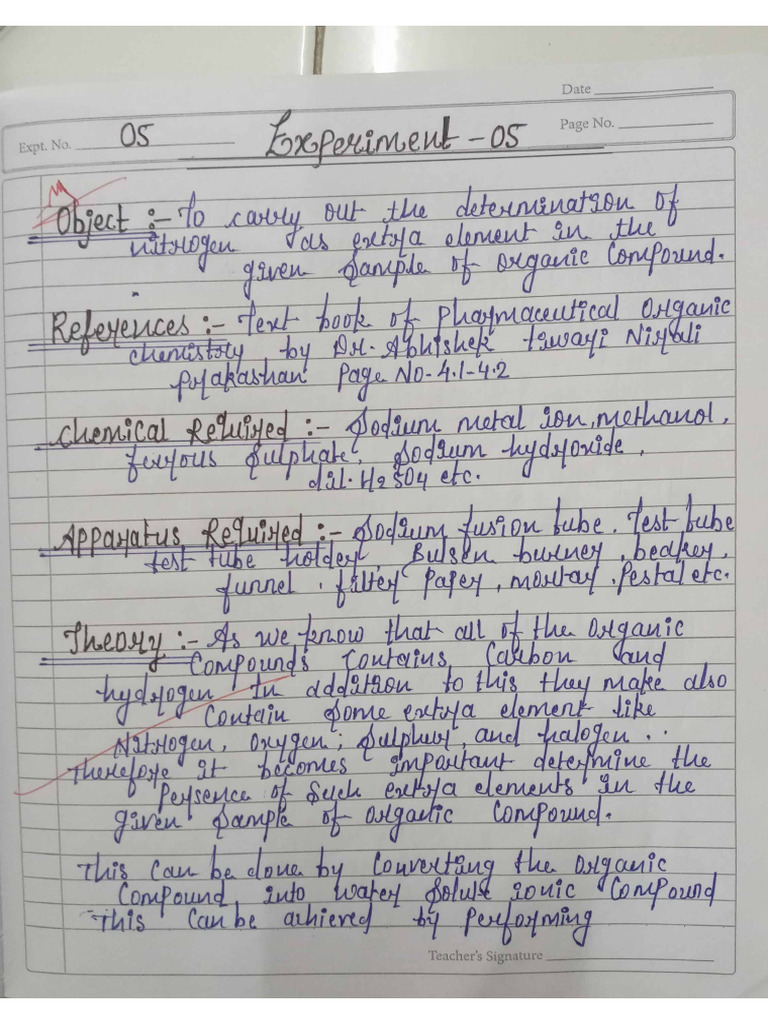 Date
Expt. No. 05
Experiment - 05
Page No.
Object :- To carry out the determination of
nitrogen as extra element in the
given sample of organic compound.
References :- Text book of Pharmaceutical Organic
chemistry by Dr. Abhishek tiwari Nirali
Prakashan Page No- 4.1-4.2
Chemical Required :- Sodium metal ion, methanol,
ferrous sulphate, Sodium hydroxide,
dil. H2SO4 etc.
Apparatus Required :- Sodium fusion tube. Test tube
test tube holder, Bulsen burner, beaker,
funnel. filter paper, mortar. Pestal etc.
Theory :- As we know that all of the organic
Compounds Contains Carbon and
hydrogen In addition to this they make also
Contain some extra element like
Nitrogen, Oxygen; Sulphur, and halogen ..
Therefore it becomes important determine the
persence of such extra elements in the
given sample of organic compound.
This can be done by Converting the organic
Compound into water soluse ionic Compound
This Can be achieved by performing
Teacher's Signature